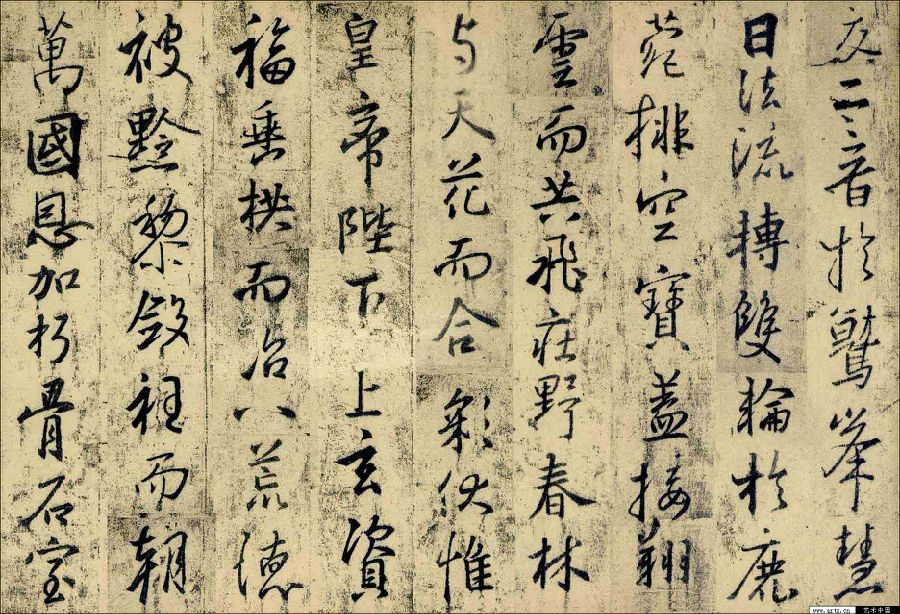 夜二音於鷲峯慧
日法流轉雙輪於鹿
菀排空寶蓋接翔
雲而共飛莊野春林
与天花而合彩伏惟
皇帝陛下上玄資
福垂拱而治八荒德
被黔黎斂衽而朝
萬國恩加朽骨石室
www.artx.cn 艺术中国